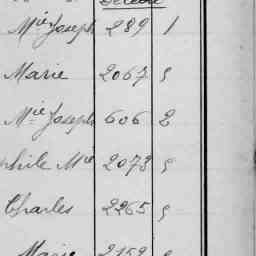 Mie Joseph 289 1
Marie 2067 9
Mie Joseph 606 2
phile Mie 2073 9
Charles 2265 9
Marie 2159 9